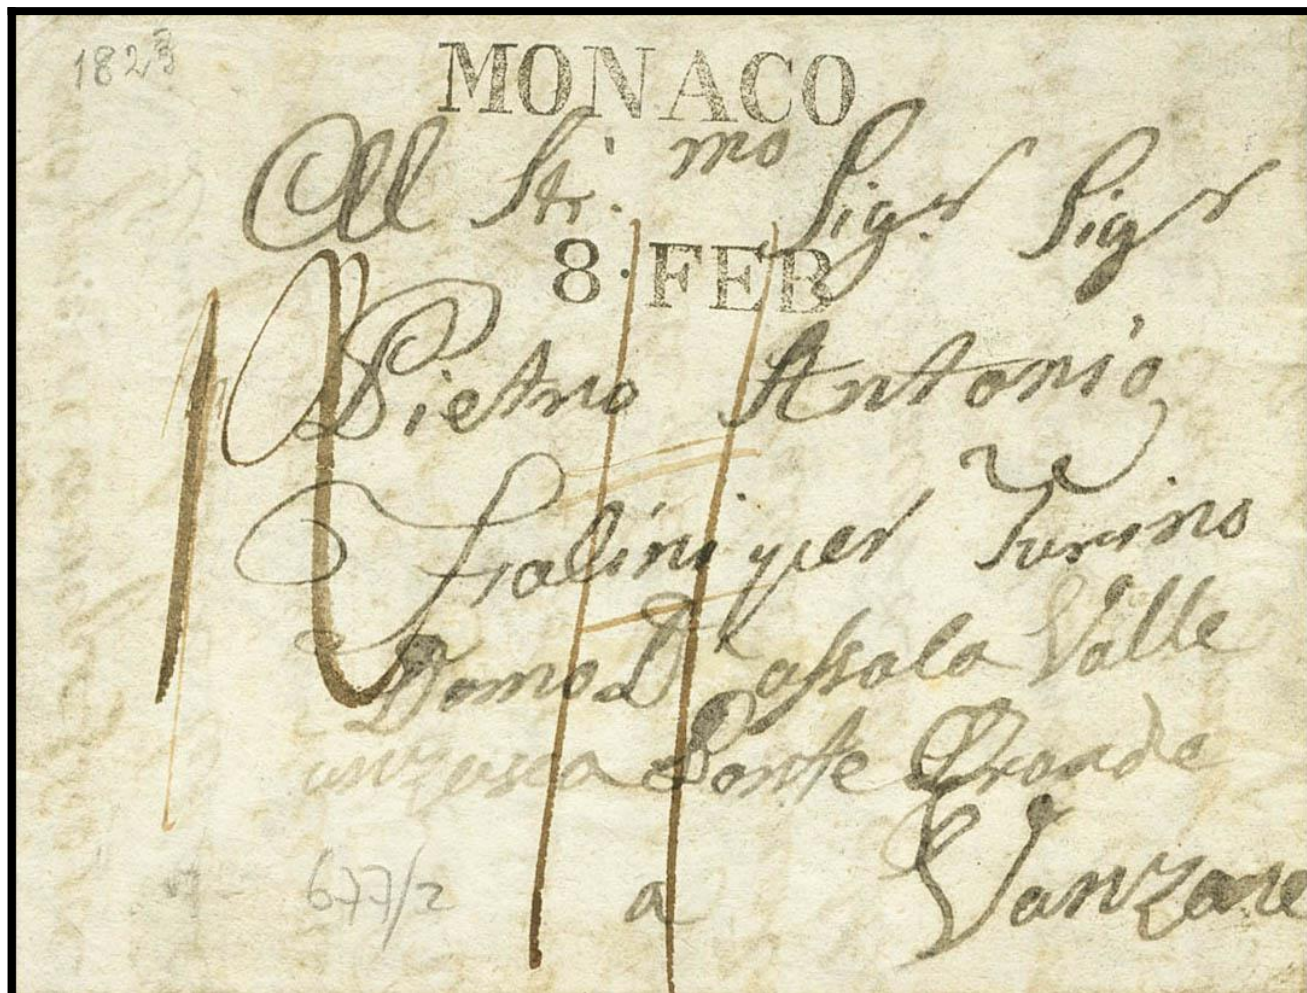 1823
MONACO
All St: mo Sigr Sigr
8·FEB
Pietro Antonio
per Turino
Domo D'assala Valle
anzasca Ponte Grande
677/2 a Vanzone